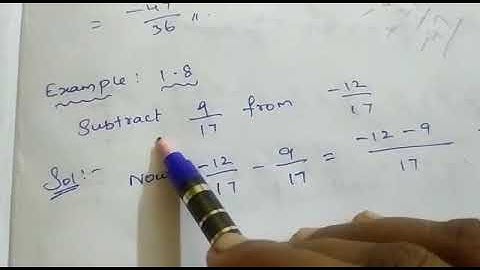 = -47/36 ,,
Example: 1.8
Subtract 9/17 from -12/17
Sol:- Now -12/17 - 9/17 = -12-9/17